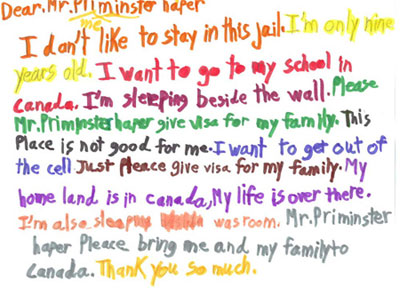 Dear.Mr.Priminster haper
me
I don't like to stay in this jail. I'm only nine
years old. I want to go to my school in
Canada. I'm sleeping beside the wall. Please
Mr.Priminster haper give visa for my family. This
Place is not good for me. I want to get out of
the cell Just Pleace give visa for my family. My
home land is in canada, My life is over there.
I'm also sleeping was room. Mr.Priminster
haper Pleace bring me and my family to
Canada. Thank you so much.